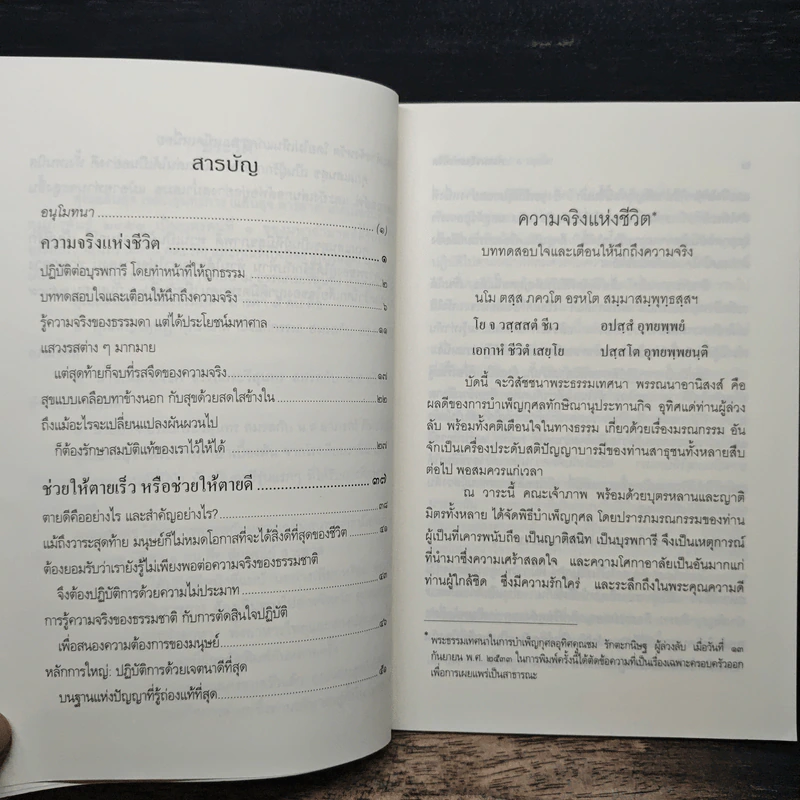 สารบัญ
อนุโมทนา (๑)
ความจริงแห่งชีวิต ๑
ปฏิบัติต่อบุรพการี โดยทำหน้าที่ให้ถูกธรรม ๒
บททดสอบใจและเตือนให้นึกถึงความจริง ๖
รู้ความจริงของธรรมดา แต่ได้ประโยชน์มหาศาล ๑๑
แสวงรสต่าง ๆ มากมาย
แต่สุดท้ายก็จบที่รสจืดของความจริง ๑๗
สุขแบบเคลือบทาข้างนอก กับสุขด้วยสดใสข้างใน ๒๒
ถึงแม้อะไรจะเปลี่ยนแปลงผันผวนไป
ก็ต้องรักษาสมบัติแท้ของเราไว้ให้ได้ ๒๗
ช่วยให้ตายเร็ว หรือช่วยให้ตายดี ๓๗
ตายดีคืออย่างไร และสำคัญอย่างไร? ๓๘
แม้ถึงวาระสุดท้าย มนุษย์ก็ไม่หมดโอกาสที่จะได้สิ่งดีที่สุดของชีวิต ๔๑
ต้องยอมรับว่าเรายังรู้ไม่เพียงพอต่อความจริงของธรรมชาติ
จึงต้องปฏิบัติการด้วยความไม่ประมาท ๔๓
การรู้ความจริงของธรรมชาติ กับการตัดสินใจปฏิบัติ
เพื่อสนองความต้องการของมนุษย์ ๔๖
หลักการใหญ่: ปฏิบัติการด้วยเจตนาดีที่สุด
บนฐานแห่งปัญญาที่รู้ถ่องแท้ที่สุด ๕๑
ความจริงแห่งชีวิต*
บททดสอบใจและเตือนให้นึกถึงความจริง
นโม ตสฺส ภควโต อรหโต สมฺมาสมฺพุทฺธสฺสฯ
โย จ วสฺสสตํ ชีเว อปสฺสํ อุทยพฺพยํ
เอกาหํ ชีวิตํ เสยฺโย ปสฺสโต อุทยพฺพยนฺติ
บัดนี้ จะวิสัชชนาพระธรรมเทศนา พรรณนาอานิสงส์ คือ
ผลดีของการบำเพ็ญกุศลทักษิณานุปทานกิจ อุทิศแด่ท่านผู้ล่วง
ลับ พร้อมทั้งคติเตือนใจในทางธรรม เกี่ยวด้วยเรื่องมรณกรรม อัน
จักเป็นเครื่องประดับสติปัญญาบารมีของท่านสาธุชนทั้งหลายสืบ
ต่อไป พอสมควรแก่เวลา
ณ วาระนี้ คณะเจ้าภาพ พร้อมด้วยบุตรหลานและญาติ
มิตรทั้งหลาย ได้จัดพิธีบำเพ็ญกุศล โดยปรารภมรณกรรมของท่าน
ผู้เป็นที่เคารพนับถือ เป็นญาติสนิท เป็นบุรพการี จึงเป็นเหตุการณ์
ที่นำมาซึ่งความเศร้าสลดใจ และความโศกาอาลัยเป็นอันมากแก่
ท่านผู้ใกล้ชิด ซึ่งมีความรักใคร่ และระลึกถึงในพระคุณความดี
* พระธรรมเทศนาในการบำเพ็ญกุศลอุทิศคุณชม รักตะกนิษฐ ผู้ล่วงลับ เมื่อวันที่ ๑๓
กันยายน พ.ศ. ๒๕๓๓ ในการพิมพ์ครั้งนี้ได้ตัดข้อความที่เป็นเรื่องเฉพาะครอบครัวออก
เพื่อการเผยแพร่เป็นสาธารณะ